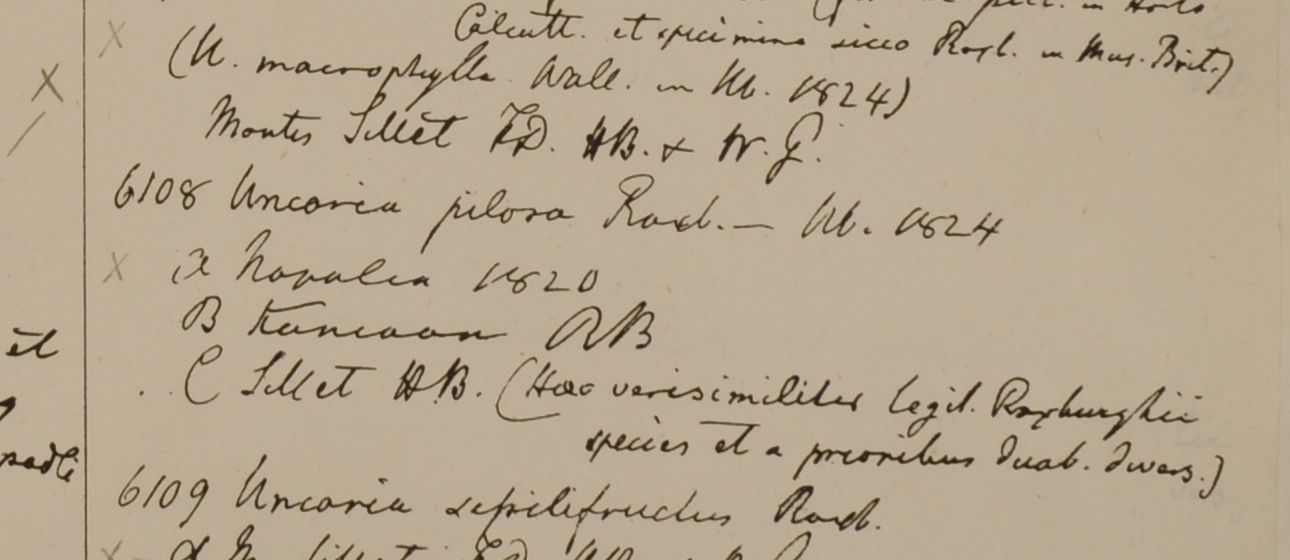 in Horto
Calcutt. et specimine sicco Roxb. in Mus. Brit.)
(U. macrophylla Wall. in hb. 1824)
Montes Sillet FD. HB. & W. G.
6108 Uncaria pilosa Roxb. — hb. 1824
a Napalia 1820
B Kamaon RB
C Sillet HB. (Haec verisimiliter legit. Roxburghii
et
species et a prioribus duab. divers.)
6109 Uncaria sessilifructus Roxb.